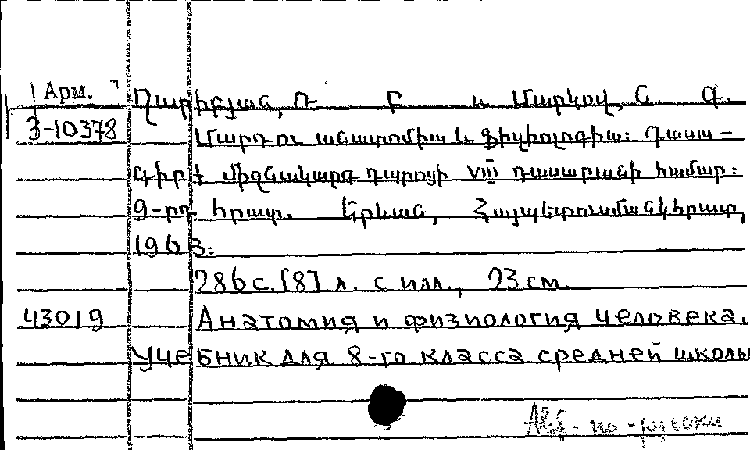 Арм.
3-10378
Ղարիբյան, Ռ. Բ. և Մարկով, Ա. Գ.
Մարդու անատոմիա և ֆիզիոլոգիա: Դասա-
գիրք միջնակարգ դպրոցի VIII դասարանի համար:
9-րդ հրատ. Երևան, Հայպետուսմանկհրատ,
1963.
286 с. [8] л. с илл., 23 см.
43019
Анатомия и физиология человека.
Учебник для 8-го класса средней школы
Авт. - по -русски